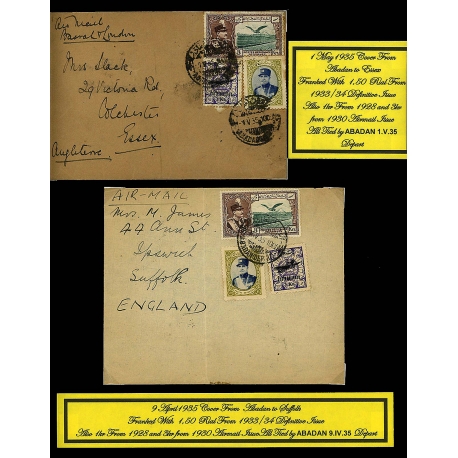 Air Mail
Basrah & London
Mrs. Slack,
29 Victoria Rd,
Colchester
Essex
Angleterre
1 May 1935 Cover From
Abadan to Essex
Franked With 1,50 Rial From
1933/34 Definitive Issue
Also 1kr From 1928 and 3kr
from 1930 Airmail Issue
All Tied by ABADAN 1.V.35
Depart
AIR-MAIL
Mrs. M. James
44 Ann St.
Ipswich
Suffolk.
ENGLAND
9 April 1935 Cover From Abadan to Suffolk
Franked With 1,50 Rial From 1933/34 Definitive Issue
Also 1kr From 1928 and 3kr from 1930 Airmail Issue All Tied by ABADAN 9.IV.35 Depart